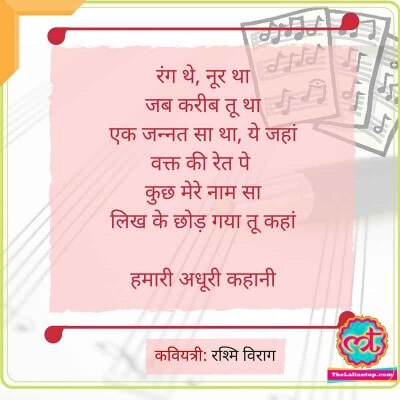 रंग थे, नूर था
जब करीब तू था
एक जन्नत सा था, ये जहां
वक्त की रेत पे
कुछ मेरे नाम सा
लिख के छोड़ गया तू कहां
हमारी अधूरी कहानी
कवियत्री: रश्मि विराग
TheLallantop.com